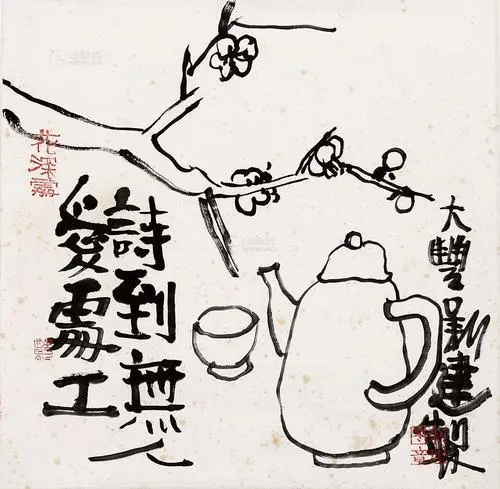 大豐新建製
詩到無人
愛處工
花深